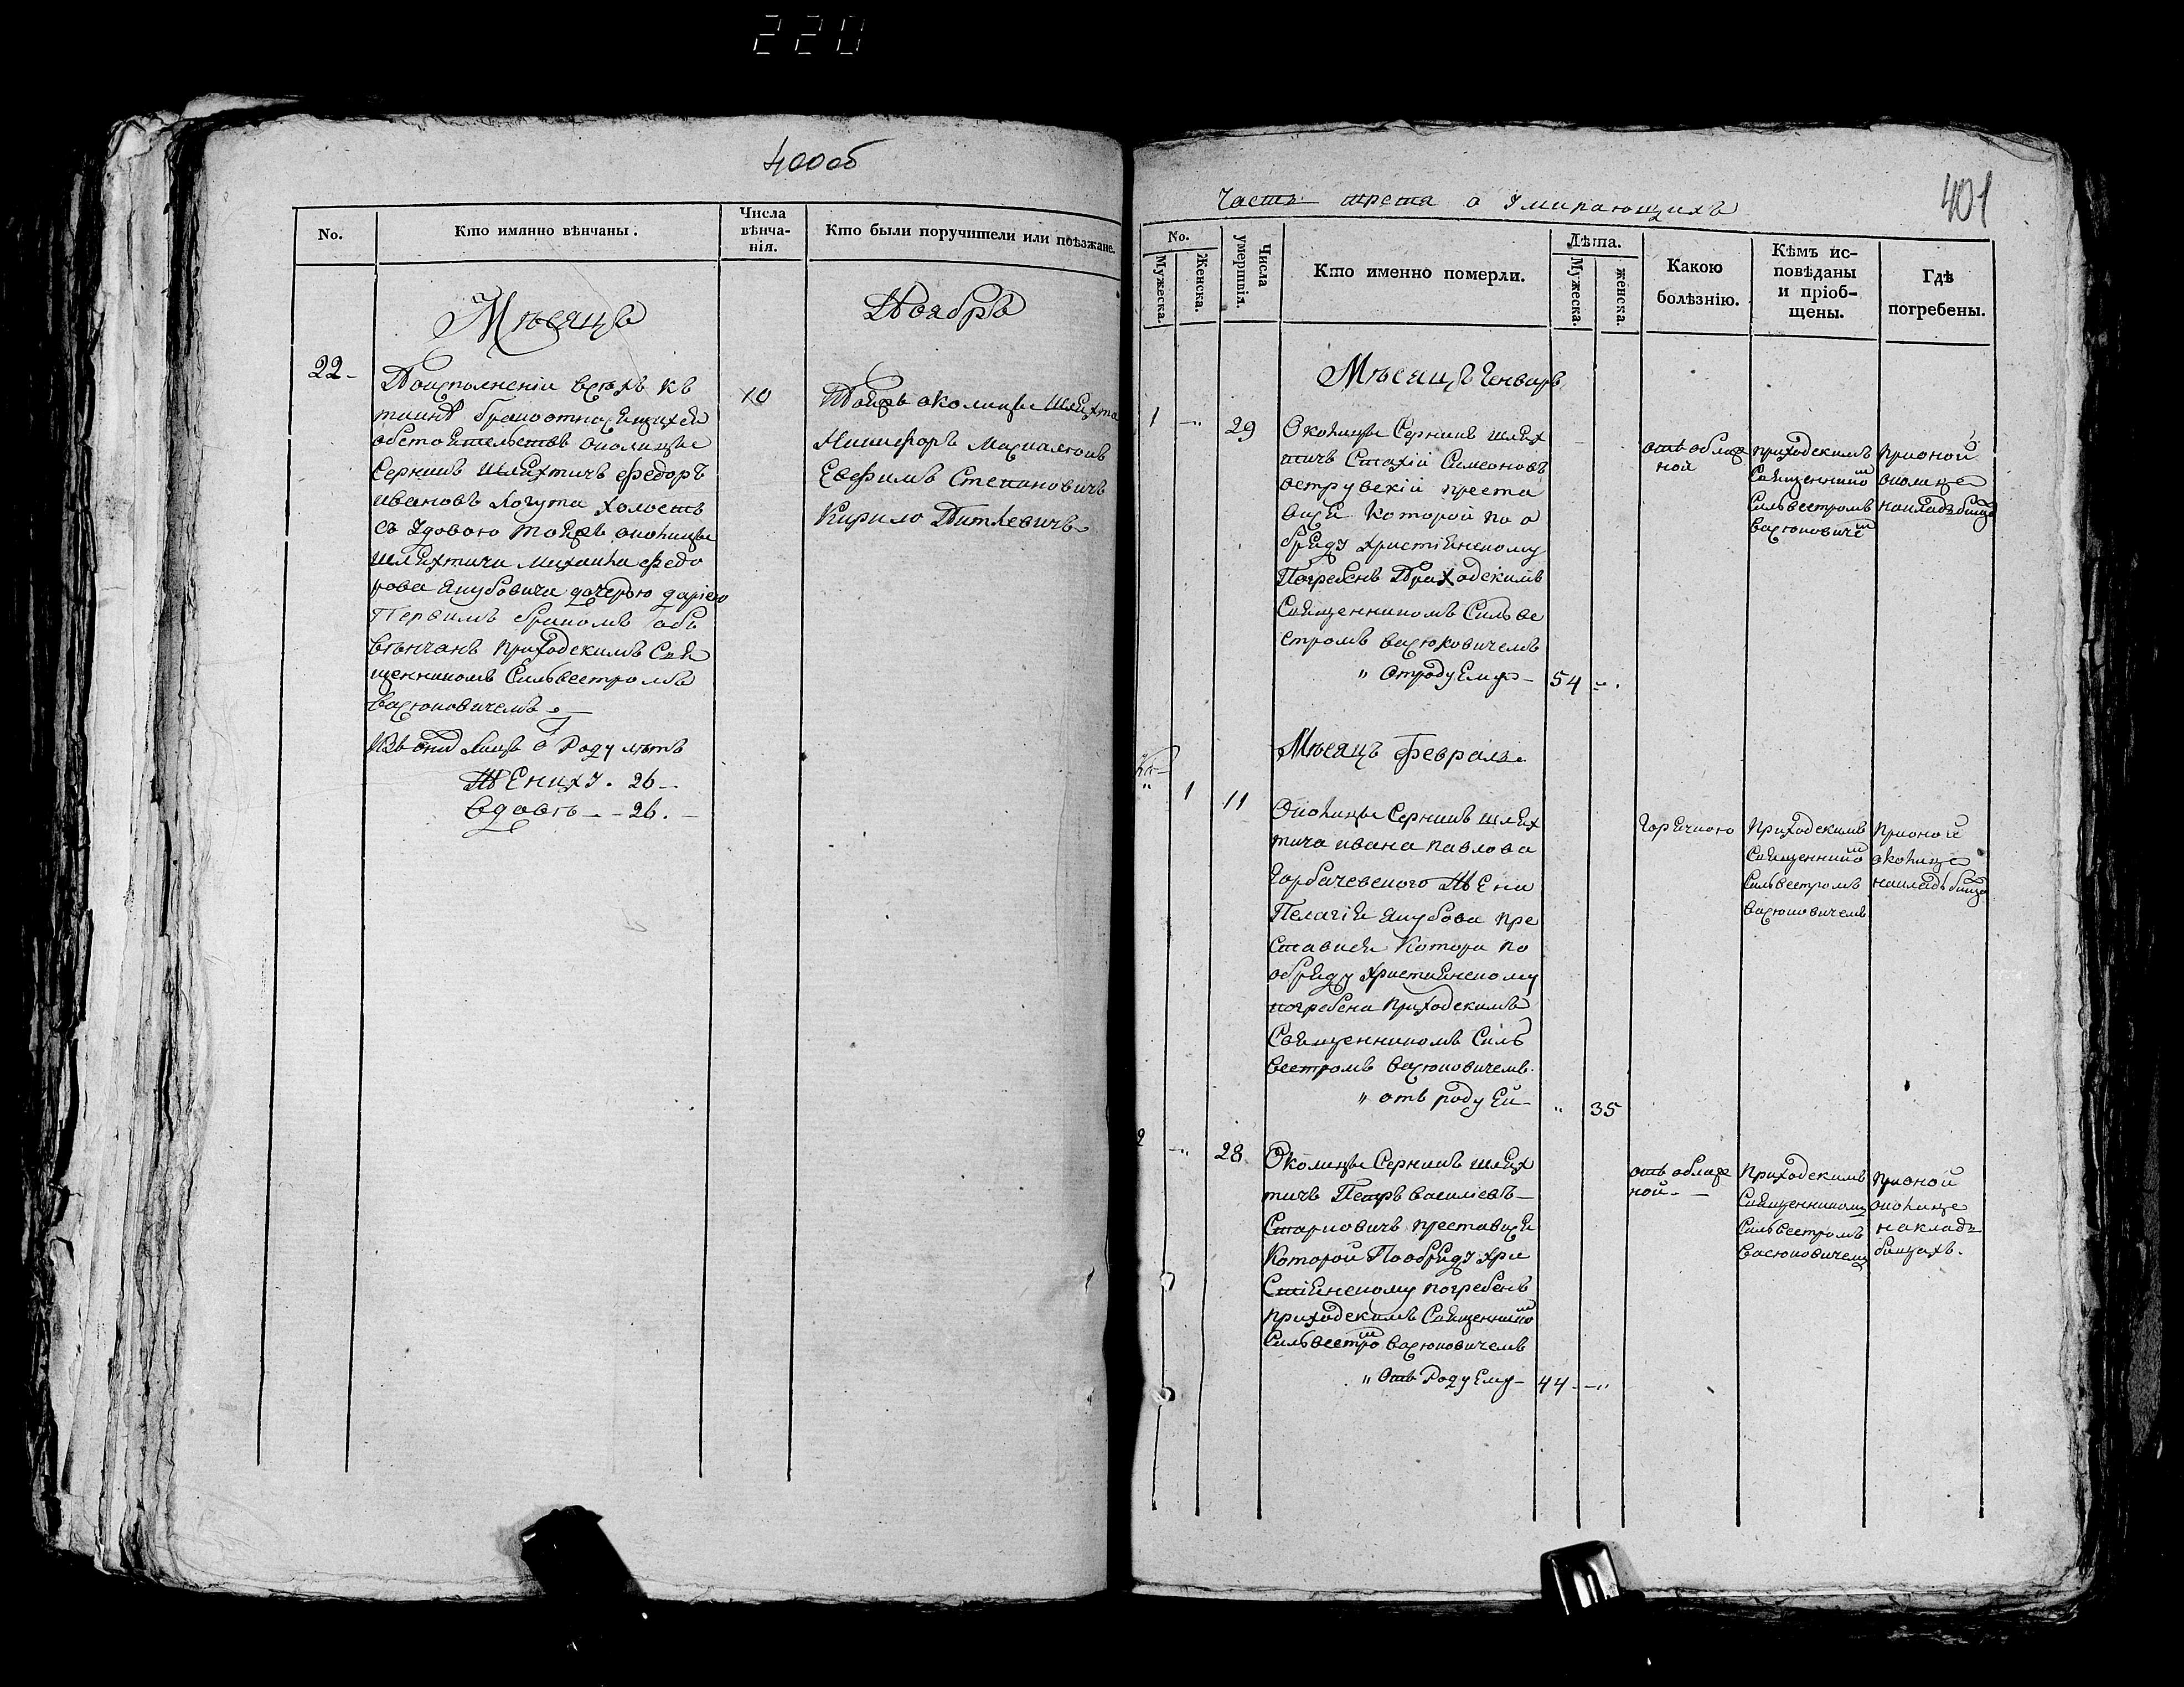 220
400об
No.
Кто имянно вѣнчаны.
Числа
вѣнча-
нія.
Кто были поручители или поѣзжане.
Мѣсяцъ
Ноябръ
22
По исполненіи всѣхъ къ
обстоятельствъ околицы
Серникъ шляхтичъ Федоръ
Ивановъ Логута холостъ
со удовою тояжъ околицы
шляхтича Михаила Федо
рова Якубовича дочерью Даріею
Первимъ бракомъ обь
вѣнчанъ приходскимъ Свя
щенникомъ Сильвестромъ
Васюковичемъ
лицъ Роду лѣтъ
Жениху. 26
Вдовѣ - - 26.
10
Тояжъ околицы Шляхта
Никифоръ
Евфимъ Степановичъ
Кирило Виткевичъ
Часть третя о Умирающихъ
401
No.
Мужеска.
Женска.
Числа
умертвія.
Кто именно померли.
Лѣта.
Мужеска.
женска.
Какою
болѣзнію.
Кѣмъ ис-
повѣданы
и пріоб-
щены.
Гдѣ
погребены.
Мѣсяцъ Генваръ
1
29
Околицы Серникъ шлях
тичъ Стахій Симеоновъ
острувскій преста
вися которой по о
бряду христіянскому
Погребенъ Приходскимъ
Священникомъ Сильве
стромъ Васюковичемъ
" Отроду Ему -
54
ной
приходскимъ
Священнико м
Сильвестромъ
Васюковиче м
При оной
околице
на кладбище
Мѣсяцъ Февраль
1
11
Околицы Серникъ шлях
тича Ивана Павлова
Горбачевского Жена
Пелагія Якубова пре
ставися Котора по
обряду Християнскому
погребена приходскимъ
Священникомъ Силь
вестромъ Васюковичемъ.
" отъ роду Ей -
35
Горячкою
Приходскимъ
Священнико м
Сильвестромъ
Васюковичемъ
При оной
околице
на кладбище
2
28
Околицы Серникъ шлях
тичъ Петръ Василіевъ
Старновичъ преставися
Которой По обряду Хри
Стіянскому погребенъ
приходскимъ Священнико м
Сильвестро м Васюковичемъ
" Отъ Роду Ему -
44
ной
Приходскимъ
Священникомъ
Сильвестромъ
Васюковичемъ
При оной
околице
на кладъ
бищахъ.